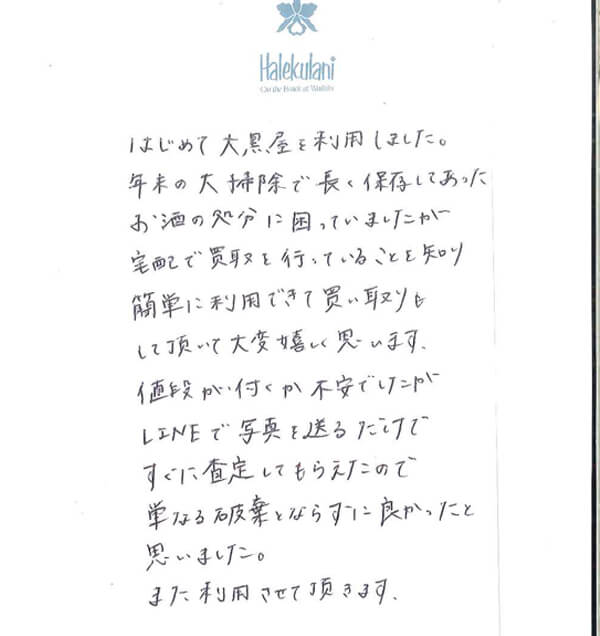 Halekulani
On the Beach at Waikiki
はじめて大黒屋を利用しました。
年末の大掃除で長く保存してあった
お酒の処分に困っていましたが
宅配で買取を行っていることを知り
簡単に利用できて買い取りも
して頂いて大変嬉しく思います.
値段が付くか不安でしたが
LINEで写真を送るだけで
すぐに査定してもらえたので
単なる破棄とならずに良かったと
思いました。
また利用させて頂きます.